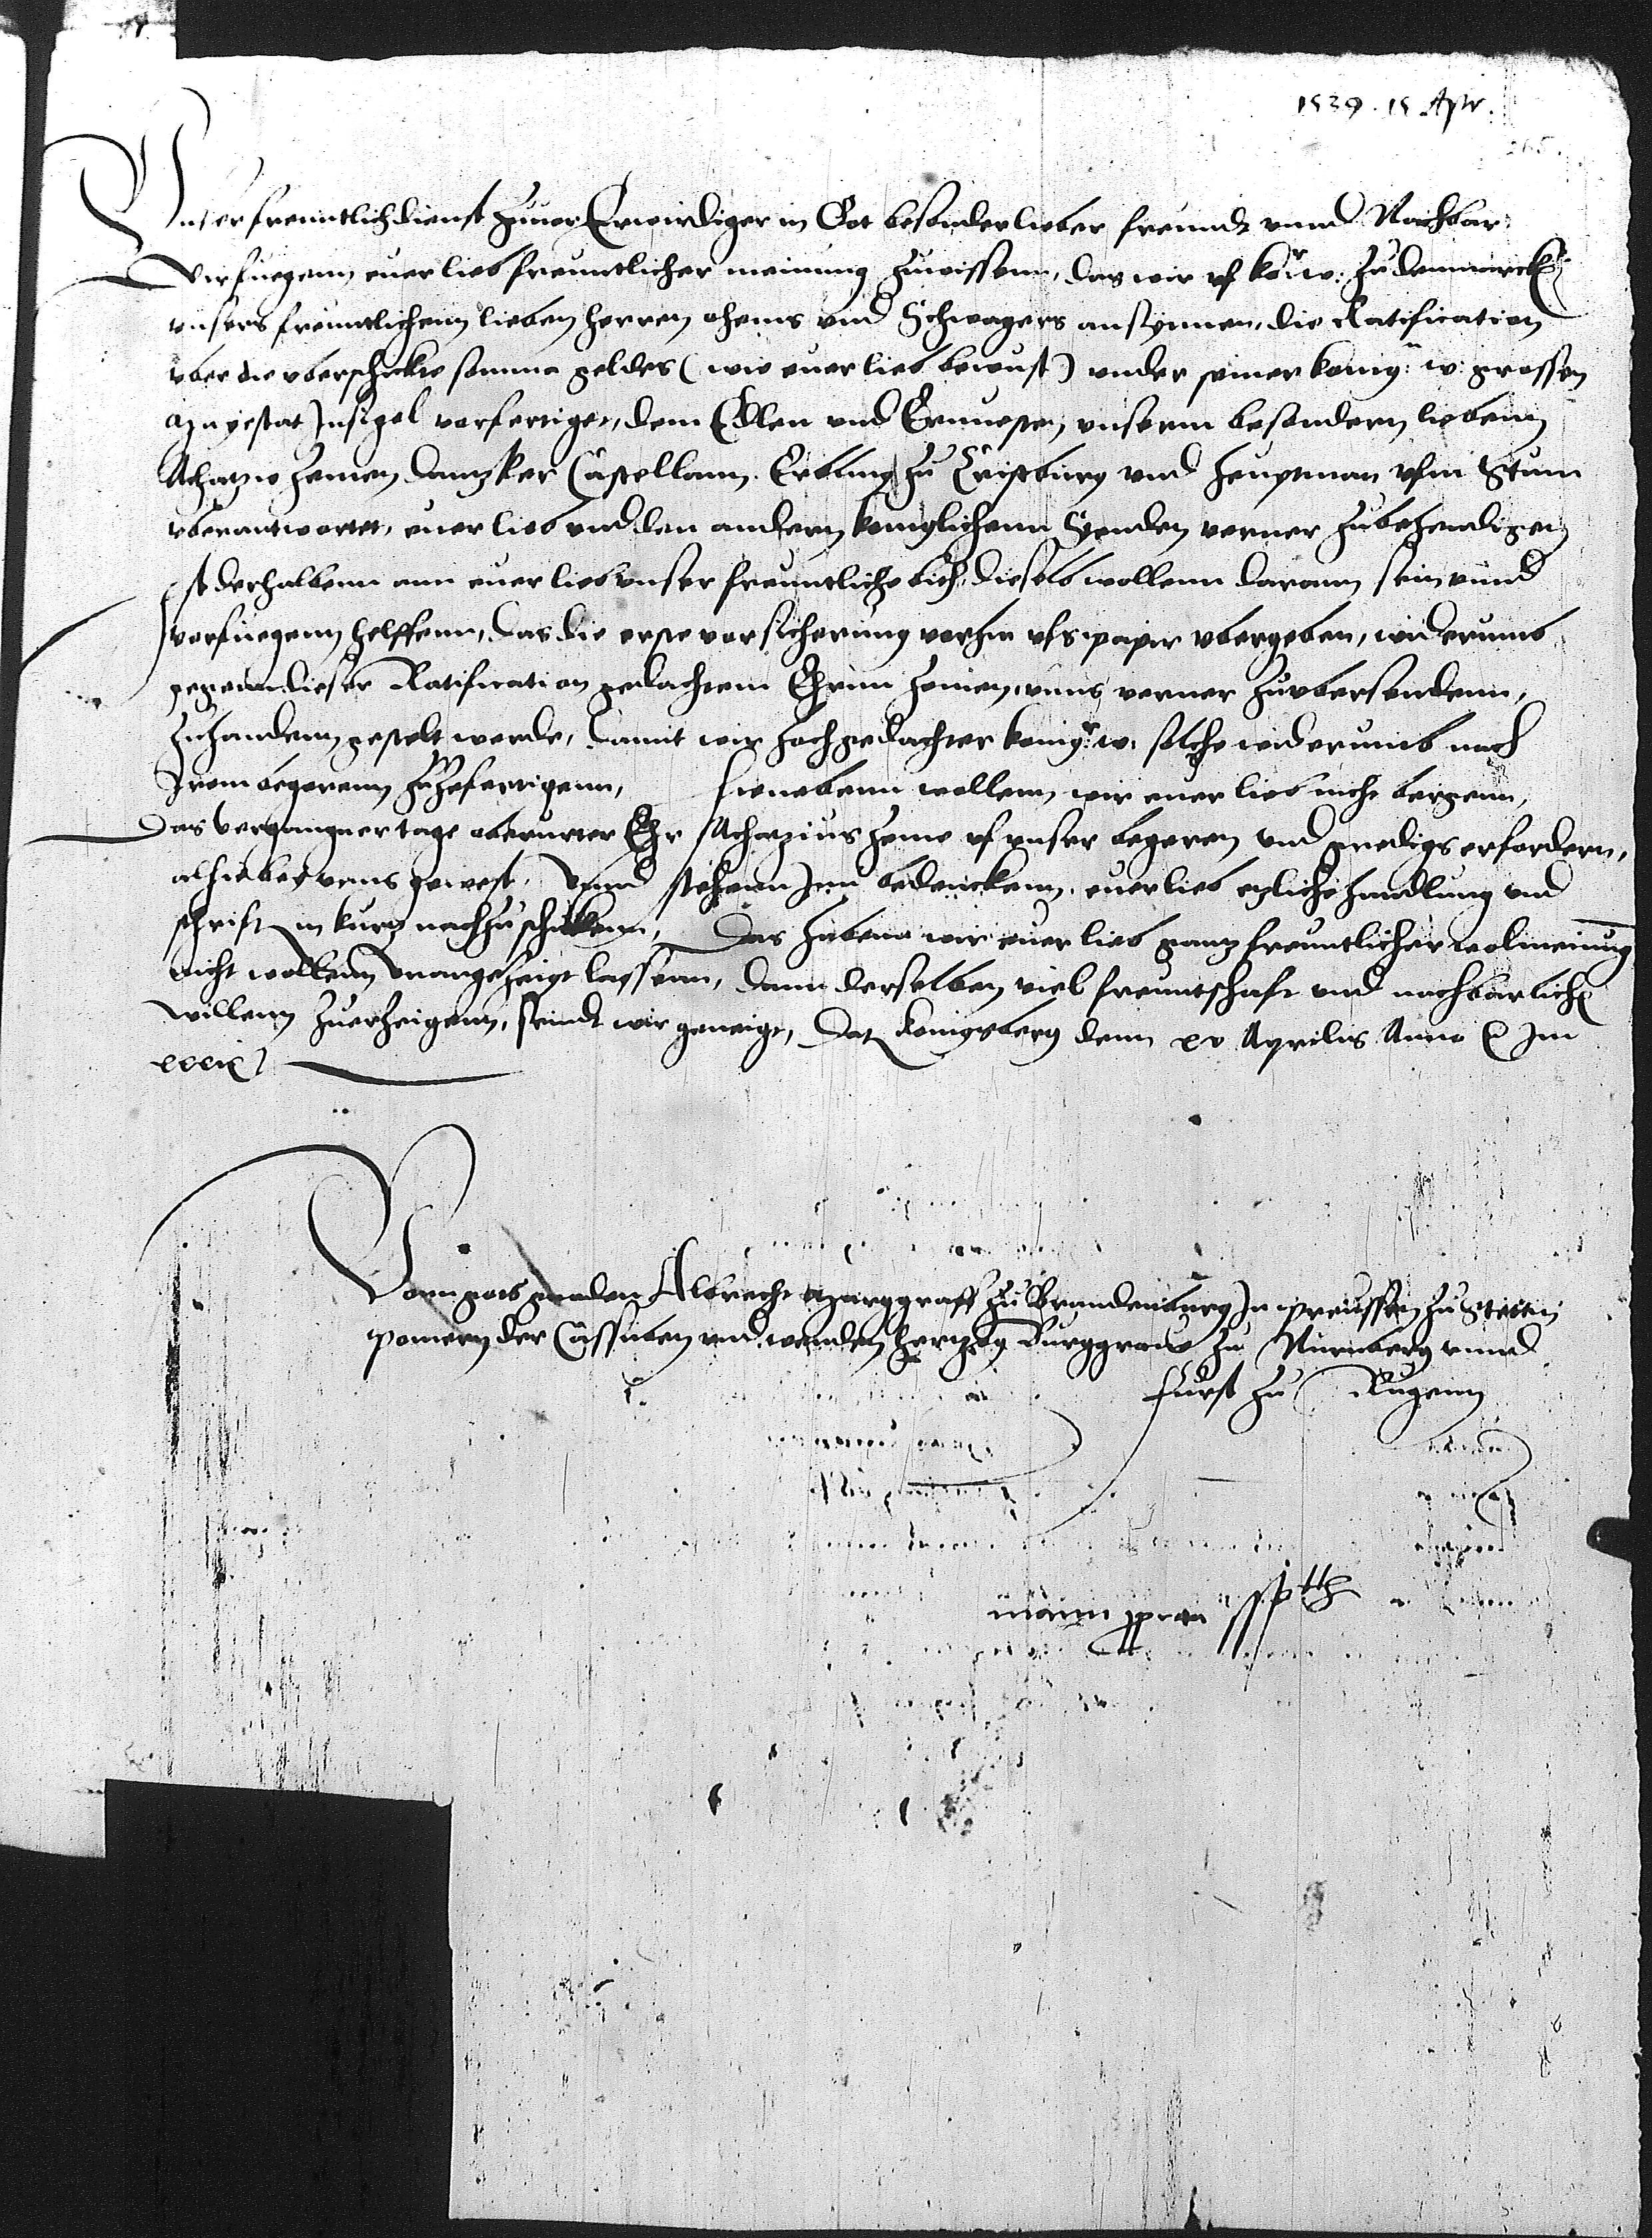 1539. 15 Apr.
Unser freuntlich dienst zuuor Erwirdiger in Got besonder lieber freundt vnnd Nachbar
Wir fuegenn euer lieb freuntlicher meinung zuwissenn, das wir vf ko. w: zu dennmarck
vnsers freuntlichenn lieben herren ohems vnd Schwagers ansynnen, die Ratification
vber die vberschickte somma geldes (wie euer lieb bewust) vnder seiner konig: w: grossen
Mayestat Insigel vorfertiget, dem Edlen vnd Ernuesten vnserm besondern liebenn
Achatzio Zemen Danzker Castellann Erbling zu Cristburg vnd heuptman vfm Stum
vberantwortet, euer lieb vnd den andern koniglichenn Henden verner zubehendigen
Ist derhalbenn ann euer lieb vnser freuntliche bith, dieselb wollenn darann sein vnnd
verfuegenn helffenn, das die erste vorsicherung vorhin vfs papir vbergeben, widerumb
gegenn dieser Ratification gedachtem Ehrnn Zemen, vnns verner zuvbersendenn,
zuhandenn gestelt werde, damit wir hochgedachter konig: w: solche widerumb nach
Irem begerenn zuzefertigenn, hienebenn wollenn wir euer lieb nicht bergenn,
Das vergangner tage oberurter Ehr Achatzius Zeme vf vnser begeren vnd gnedigs erfordern,
alhie bey vnns gewest, Vnnd stehenn Inn bedenckenn, euer lieb etzliche handlung vnd
schrift in kurtz nachzuschickenn, Das habenn wir euer lieb gantz freuntlicher wolmeinung
nicht wollenn vnangezeigt lassenn, dann derselben viel freuntschaft vnd nachbarlich
willenn zuerzeigenn, seindt wir geneigt, Dat Konigsberg denn xv Aprilis Anno Im
xxxix
Vonn gots gnaden Albrecht Marggraff zu Brandenburg In preussen zu Stettin
pomern der Cassuben vnd wenden hertzog Burggraue zu Nurmberg vnnd
Furst zu Rugenn
manu ppria sspth